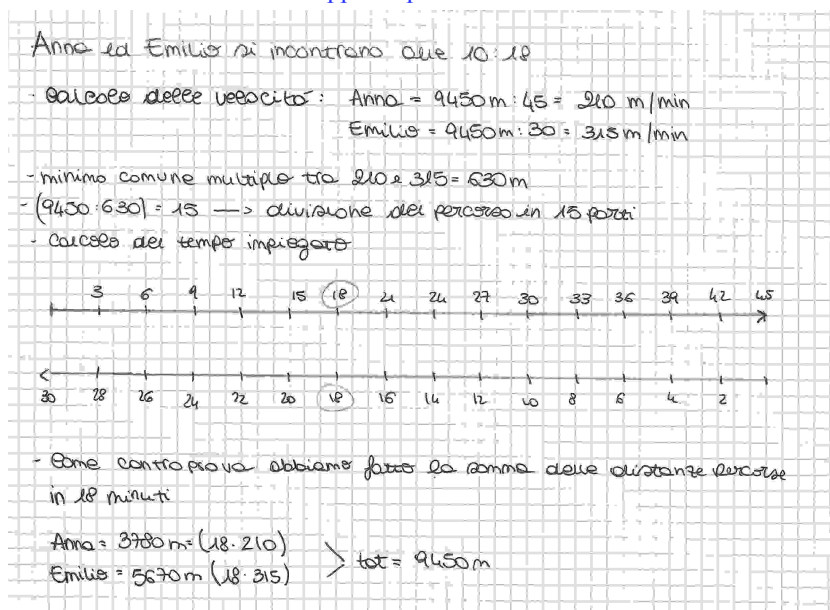 Anna ed Emilio si incontrano alle 10:18
- Calcolo delle velocità: Anna = 9450m : 45 = 210 m/min
Emilio = 9450m : 30 = 315 m/min
- minimo comune multiplo tra 210 e 315 = 630m
- (9450 : 630) = 15 —> divisione del percorso in 15 parti
- Calcolo del tempo impiegato
3 6 9 12 15 18 21 24 27 30 33 36 39 42 45
30 28 26 24 22 20 18 16 14 12 10 8 6 4 2
- Come controprova abbiamo fatto la somma delle distanze percorse
in 18 minuti
Anna = 3780 m = (18 · 210)
Emilio = 5670 m (18 · 315)
> tot = 9450 m